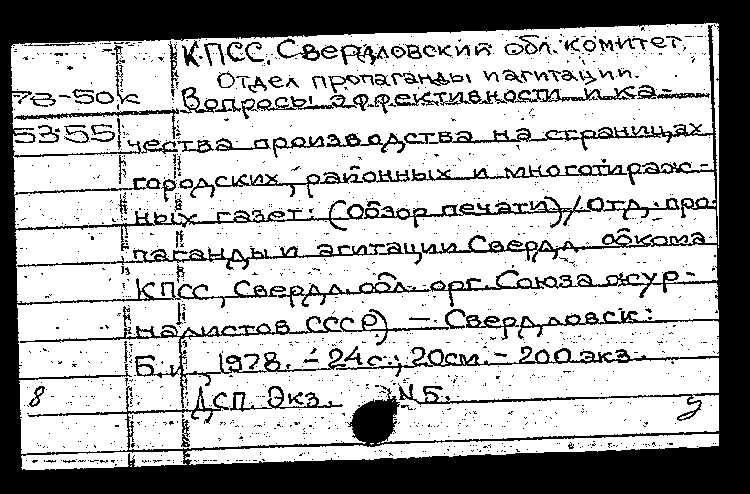 КПСС. Свердловский обл. комитет.
Отдел пропаганды и агитации.
78-50к Вопросы эффективности и ка-
53.55 чества производства на страницах
городских, районных и многотираж-
ных газет: (Обзор печати)/Отд. про-
паганды и агитации Свердл. обкома
КПСС, Свердл. обл. орг. Союза жур-
налистов СССР) — Свердловск:
Б.и., 1978. - 24 с.; 20см. - 200 экз.
8 ДСП. Экз. №5.